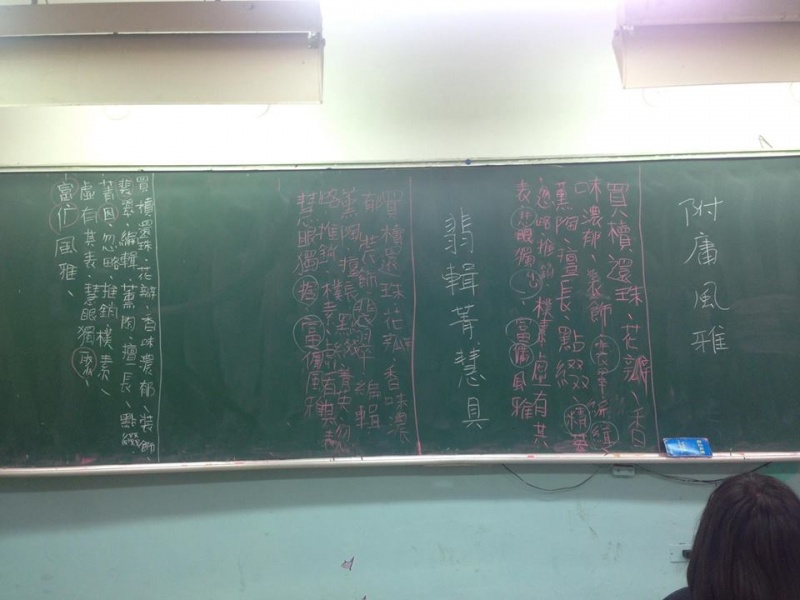 附庸風雅
買櫝還珠、花瓣、香
味濃郁、裝飾、
薰陶、擅長、點綴、精英
忽略推銷、樸素虛有其
表、慧眼獨出、富傭風雅
翡輯菁慧具
買櫝還珠花瓣香味濃
郁裝飾翡翠編輯
薰陶擅長點綴菁英忽
略推銷樸素虛有其表
慧眼獨富傭風雅
買櫝還珠、花瓣、香味濃郁、裝飾、
翡翠、編輯、薰陶、擅長、點綴
菁英、忽略、推銷樸素、
虛有其表、慧眼獨、
富風雅、